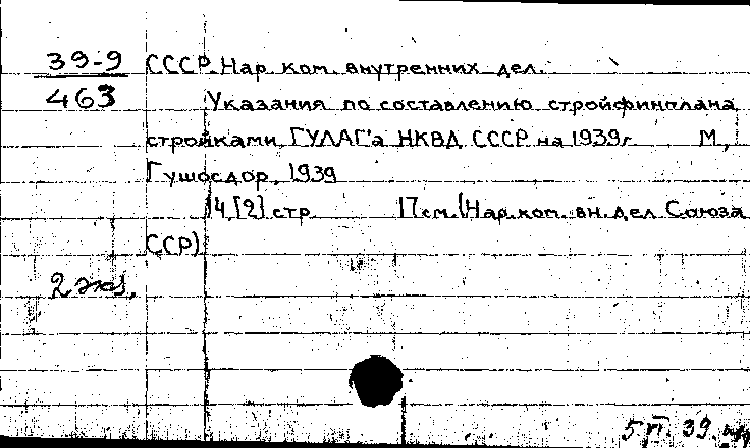 39-9 СССР. Нар. ком. внутренних дел.
463 Указания по составлению стройфинплана
стройками ГУЛАГ'а НКВД СССР на 1939г. М.,
Гушосдор, 1939
14, [2] стр. 17 см. (Нар. ком. вн. дел Союза
ССР)
2 экз.
5 VI 39